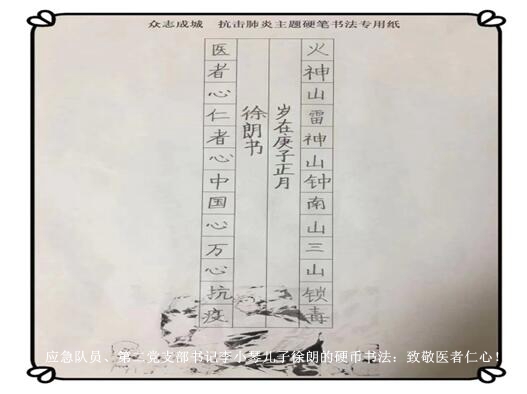 众志成城 抗击肺炎主题硬笔书法专用纸
火神山雷神山钟南山三山锁毒
岁在庚子正月
徐朗书
医者心仁者心中国心万心抗疫
应急队员、第二党支部书记李小琴儿子徐朗的硬币书法：致敬医者仁心！